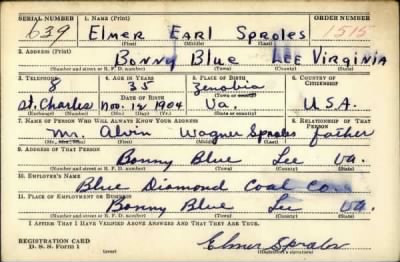 SERIAL NUMBER 1. NAME (Print) ORDER NUMBER
639 Elmer Earl Sproles 1515
(First) (Middle) (Last)
2. ADDRESS (Print)
Bonny Blue Lee Virginia
(Number and street or R. F. D. number) (Town) (County) (State)
3. TELEPHONE 4. AGE IN YEARS 5. PLACE OF BIRTH 6. COUNTRY OF CITIZENSHIP
8 35 Zenobia
DATE OF BIRTH (Town or county)
St. Charles Nov. 12 1904 Va. U.S.A.
(Exchange) (Number) (Mo.) (Day) (Yr.) (State or country)
7. NAME OF PERSON WHO WILL ALWAYS KNOW YOUR ADDRESS 8. RELATIONSHIP OF THAT PERSON
Mr. Alvin Wagner Sproles father
(Mr., Mrs., Miss) (First) (Middle) (Last)
9. ADDRESS OF THAT PERSON
Bonny Blue Lee Va.
(Number and street or R. F. D. number) (Town) (County) (State)
10. EMPLOYER'S NAME
Blue Diamond Coal Co.
11. PLACE OF EMPLOYMENT OR BUSINESS
Bonny Blue Lee Va.
(Number and street or R. F. D. number) (Town) (County) (State)
I AFFIRM THAT I HAVE VERIFIED ABOVE ANSWERS AND THAT THEY ARE TRUE.
REGISTRATION CARD
D. S. S. Form 1 Elmer Sproles
(Registrant's signature)